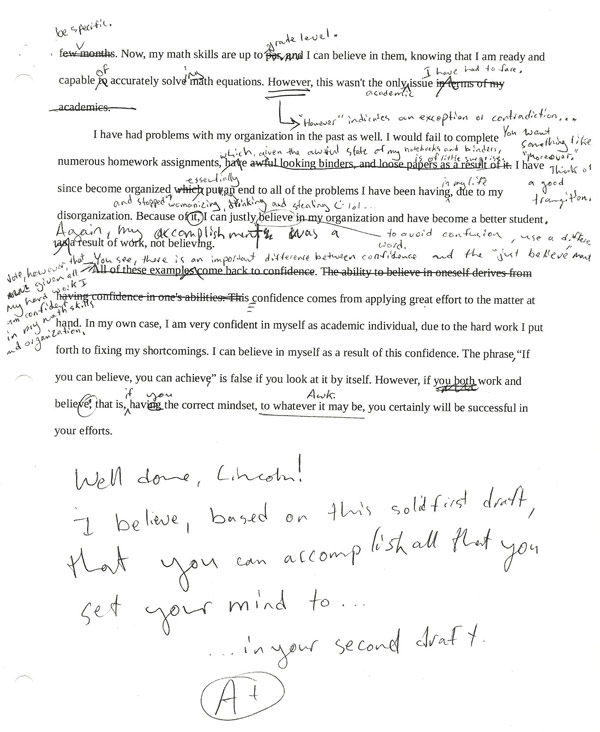 be specific.
grade level.
few months. Now, my math skills are up to par, and I can believe in them, knowing that I am ready and
of ing I have had to face.
capable in accurately solve math equations. However, this wasn't the only issue in terms of my
academic
academics.
"However" indicates an exception or contradiction...
I have had problems with my organization in the past as well. I would fail to complete
You want something like "Moreover."
which, given the awful state of my notebooks and binders, is of little surprise.
numerous homework assignments, have awful looking binders, and loose papers as a result of it. I have
Think of a good transition.
essentially in my life
since become organized which put an end to all of the problems I have been having, due to my
and stopped womanizing, thinking and stealing
disorganization. Because of it, I can justly believe in my organization and have become a better student,
Again, my accomplishment was a
to avoid confusion, use a different word.
as a result of work, not believing.
You see, there is an important difference between confidence and the "just believe"
All of these examples come hack to confidence. The ability to believe in oneself derives from
Note, however, that given all my hard work I am confident in my math skills and organization.
having confidence in one's abilities. This confidence comes from applying great effort to the matter at
hand. In my own case, I am very confident in myself as academic individual, due to the hard work I put
forth to fixing my shortcomings. I can believe in myself as a result of this confidence. The phrase, "If
you can believe, you can achieve" is false if you look at it by itself. However, if you both work and
if you Awk.
believe, that is, having the correct mindset, to whatever it may be, you certainly will be successful in
your efforts.
Well done, Lincoln!
I believe, based on this solid first draft,
that you can accomplish all that you
set your mind to...
...in your second draft.
A+